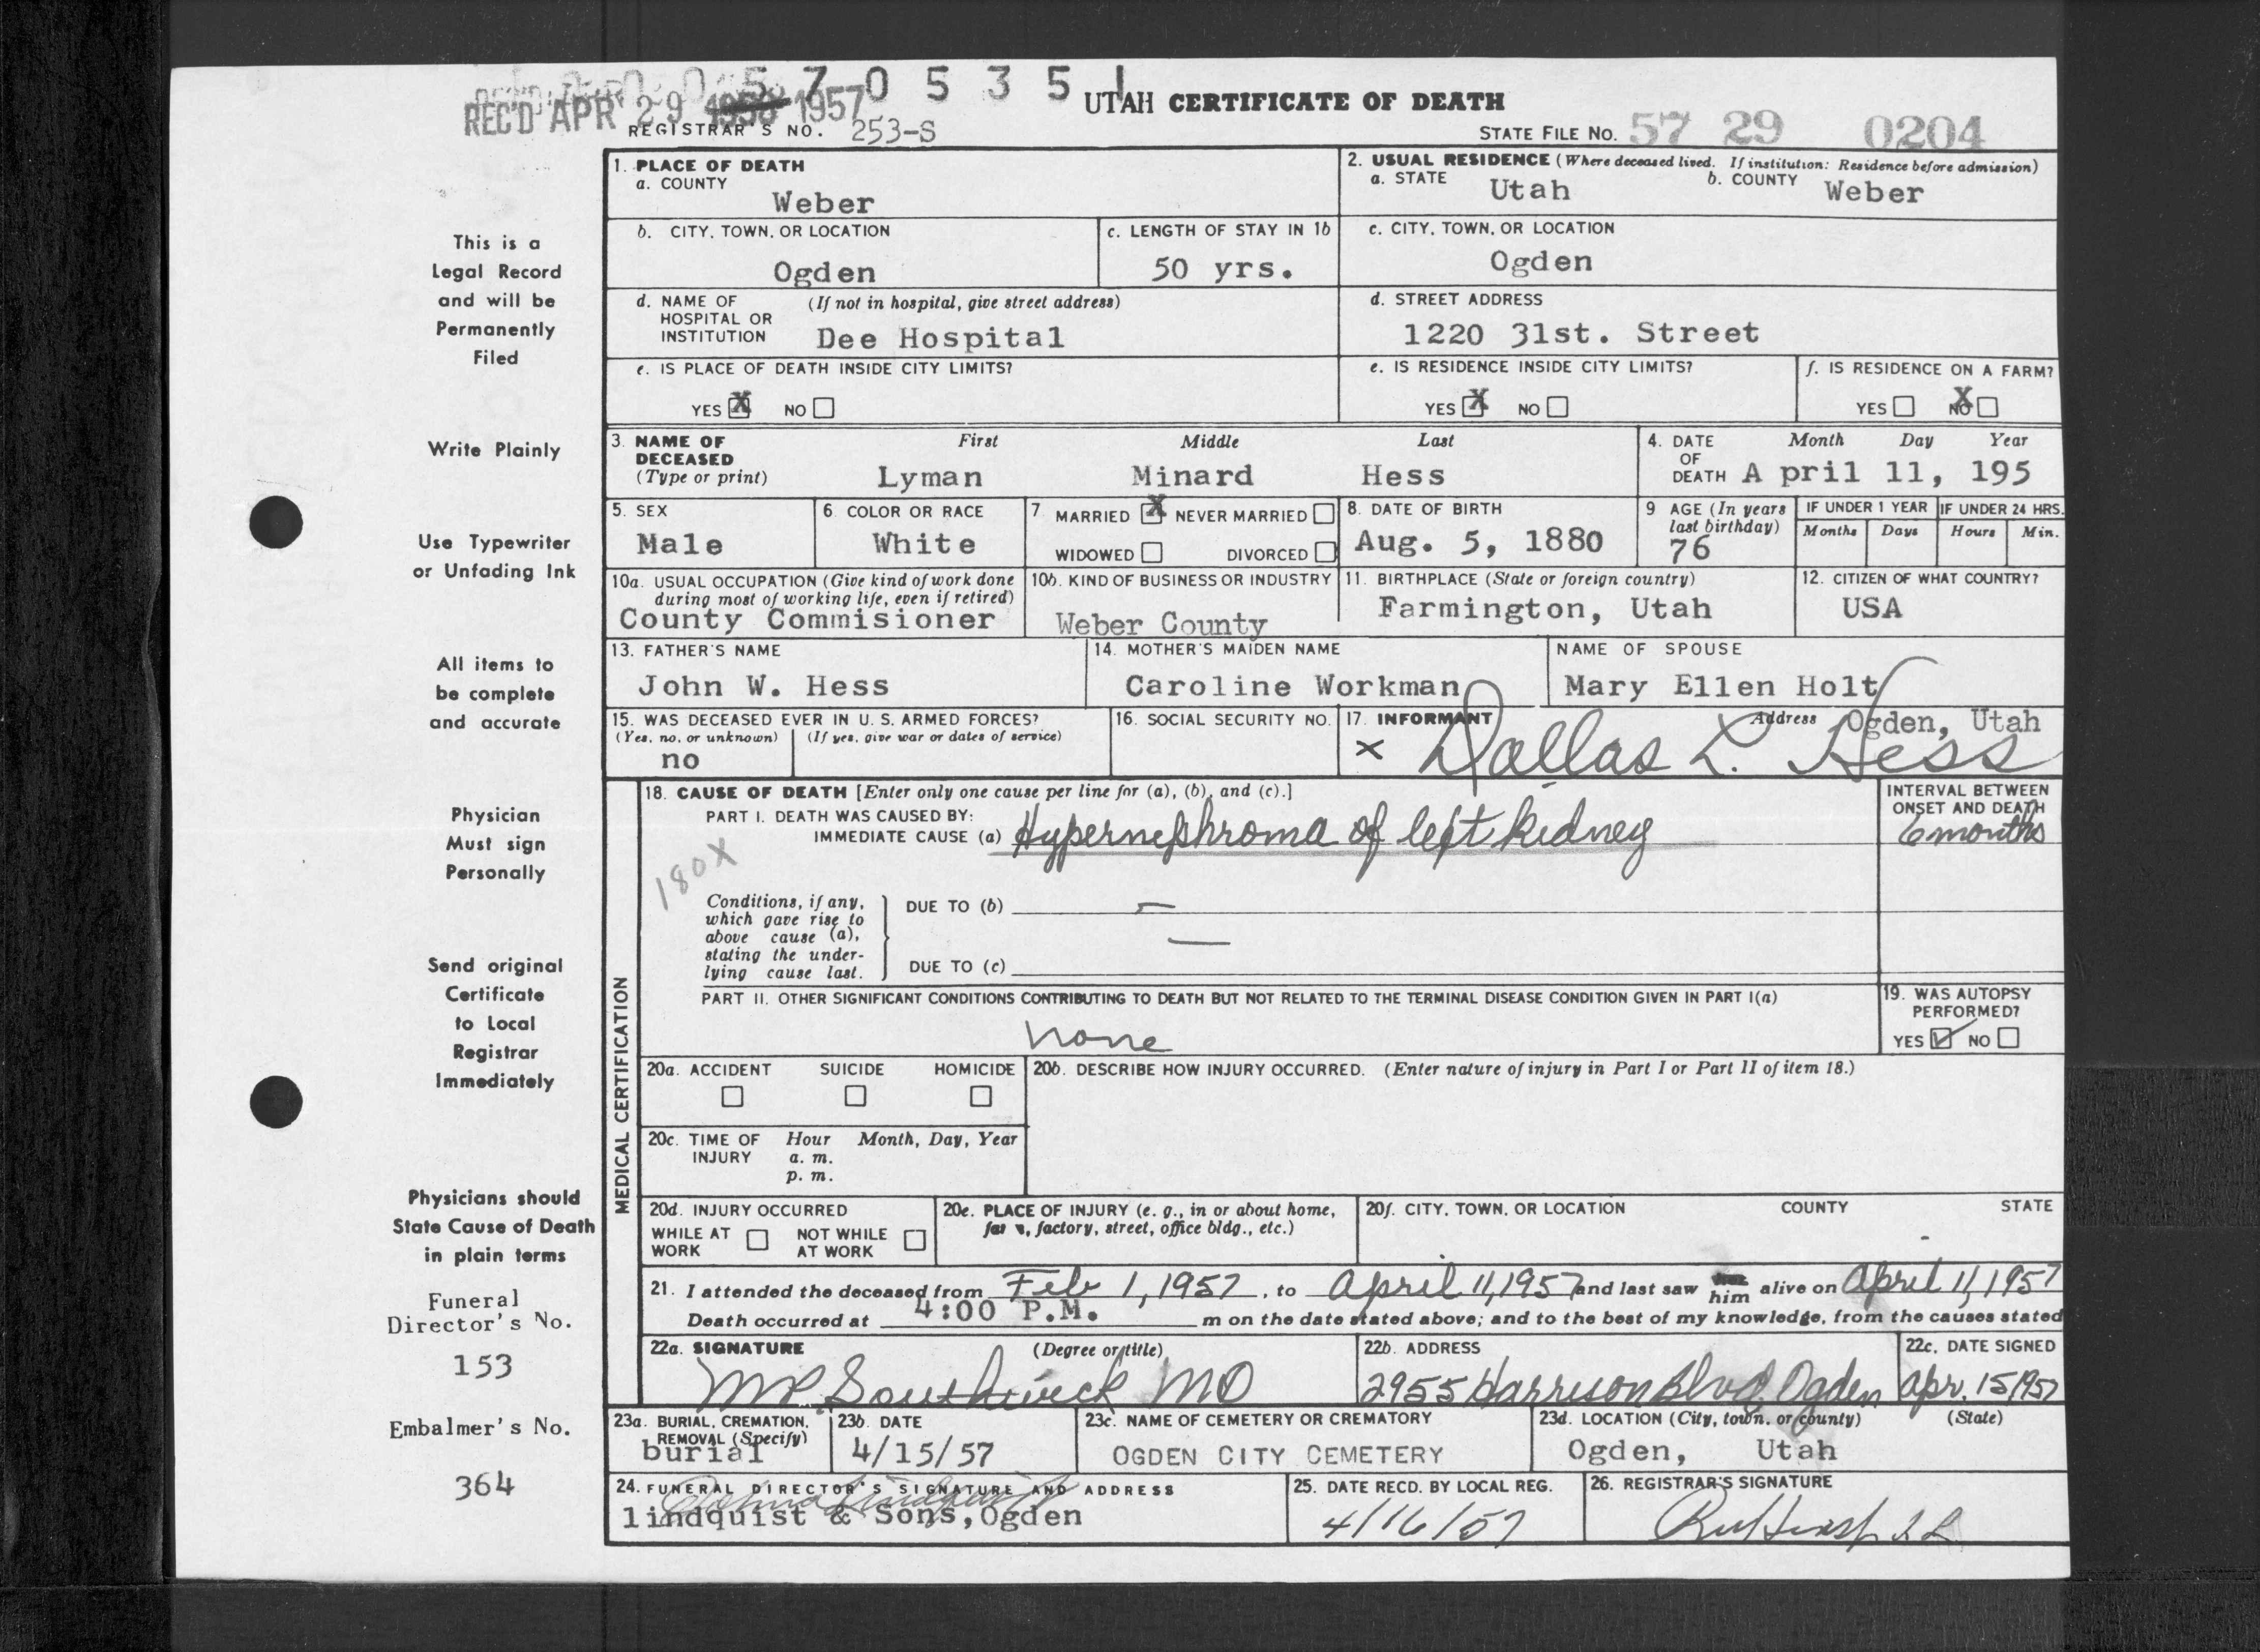 0 5 7 0 5 3 5 1
REC'D APR 29 1958 1957
UTAH CERTIFICATE OF DEATH
REGISTRAR'S NO. 253-S
STATE FILE NO. 57 29 0204
This is a
Legal Record
and will be
Permanently
Filed
Write Plainly
Use Typewriter
or Unfading Ink
All items to
be complete
and accurate
Physician
Must sign
Personally
Send original
Certificate
to Local
Registrar
Immediately
Physicians should
State Cause of Death
in plain terms
Funeral
Director's No.
153
Embalmer's No.
364
1. PLACE OF DEATH
a. COUNTY
Weber
2. USUAL RESIDENCE (Where deceased lived. If institution: Residence before admission)
a. STATE Utah b. COUNTY Weber
b. CITY, TOWN, OR LOCATION
Ogden
c. LENGTH OF STAY IN 1b
50 yrs.
c. CITY, TOWN, OR LOCATION
Ogden
d. NAME OF (If not in hospital, give street address)
HOSPITAL OR
INSTITUTION Dee Hospital
d. STREET ADDRESS
1220 31st. Street
e. IS PLACE OF DEATH INSIDE CITY LIMITS?
YES X NO
e. IS RESIDENCE INSIDE CITY LIMITS?
YES X NO
f. IS RESIDENCE ON A FARM?
YES NO X
3. NAME OF DECEASED (Type or print)
First Middle Last
Lyman Minard Hess
4. DATE OF DEATH Month Day Year
A pril 11, 195
5. SEX
Male
6. COLOR OR RACE
White
7. MARRIED X NEVER MARRIED
WIDOWED DIVORCED
8. DATE OF BIRTH
Aug. 5, 1880
9 AGE (In years
last birthday)
76
IF UNDER 1 YEAR IF UNDER 24 HRS.
Months Days Hours Min.
10a. USUAL OCCUPATION (Give kind of work done
during most of working life, even if retired)
County Commisioner
10b. KIND OF BUSINESS OR INDUSTRY
Weber County
11. BIRTHPLACE (State or foreign country)
Farmington, Utah
12. CITIZEN OF WHAT COUNTRY?
USA
13. FATHER'S NAME
John W. Hess
14. MOTHER'S MAIDEN NAME
Caroline Workman
NAME OF SPOUSE
Mary Ellen Holt
15. WAS DECEASED EVER IN U. S. ARMED FORCES?
(Yes, no, or unknown) (If yes, give war or dates of service)
no
16. SOCIAL SECURITY NO.
17. INFORMANT Address Ogden, Utah
x Dallas L. Hess
MEDICAL CERTIFICATION
18. CAUSE OF DEATH [Enter only one cause per line for (a), (b), and (c).]
PART I. DEATH WAS CAUSED BY:
IMMEDIATE CAUSE (a) Hypernephroma of left kidney
INTERVAL BETWEEN
ONSET AND DEATH
6 months
180X
Conditions, if any,
which gave rise to
above cause (a),
stating the under-
lying cause last.
DUE TO (b) —
—
DUE TO (c)
PART II. OTHER SIGNIFICANT CONDITIONS CONTRIBUTING TO DEATH BUT NOT RELATED TO THE TERMINAL DISEASE CONDITION GIVEN IN PART I(a)
none
19. WAS AUTOPSY
PERFORMED?
YES ✓ NO
20a. ACCIDENT SUICIDE HOMICIDE
20b. DESCRIBE HOW INJURY OCCURRED. (Enter nature of injury in Part I or Part II of item 18.)
20c. TIME OF INJURY Hour Month, Day, Year
a. m.
p. m.
20d. INJURY OCCURRED
WHILE AT WORK NOT WHILE AT WORK
20e. PLACE OF INJURY (e. g., in or about home,
farm, factory, street, office bldg., etc.)
20f. CITY, TOWN, OR LOCATION COUNTY STATE
21. I attended the deceased from Feb 1, 1957, to April 11, 1957 and last saw him alive on April 11, 1957
Death occurred at 4:00 P.M. m on the date stated above; and to the best of my knowledge, from the causes stated
22a. SIGNATURE (Degree or title)
MP Southwick MD
22b. ADDRESS
2955 Harrison Blvd. Ogden
22c. DATE SIGNED
Apr. 15 1957
23a. BURIAL, CREMATION,
REMOVAL (Specify)
burial
23b. DATE
4/15/57
23c. NAME OF CEMETERY OR CREMATORY
OGDEN CITY CEMETERY
23d. LOCATION (City, town, or county) (State)
Ogden, Utah
24. FUNERAL DIRECTOR'S SIGNATURE AND ADDRESS
lindquist & Sons, Ogden
25. DATE RECD. BY LOCAL REG.
4/16/57
26. REGISTRAR'S SIGNATURE